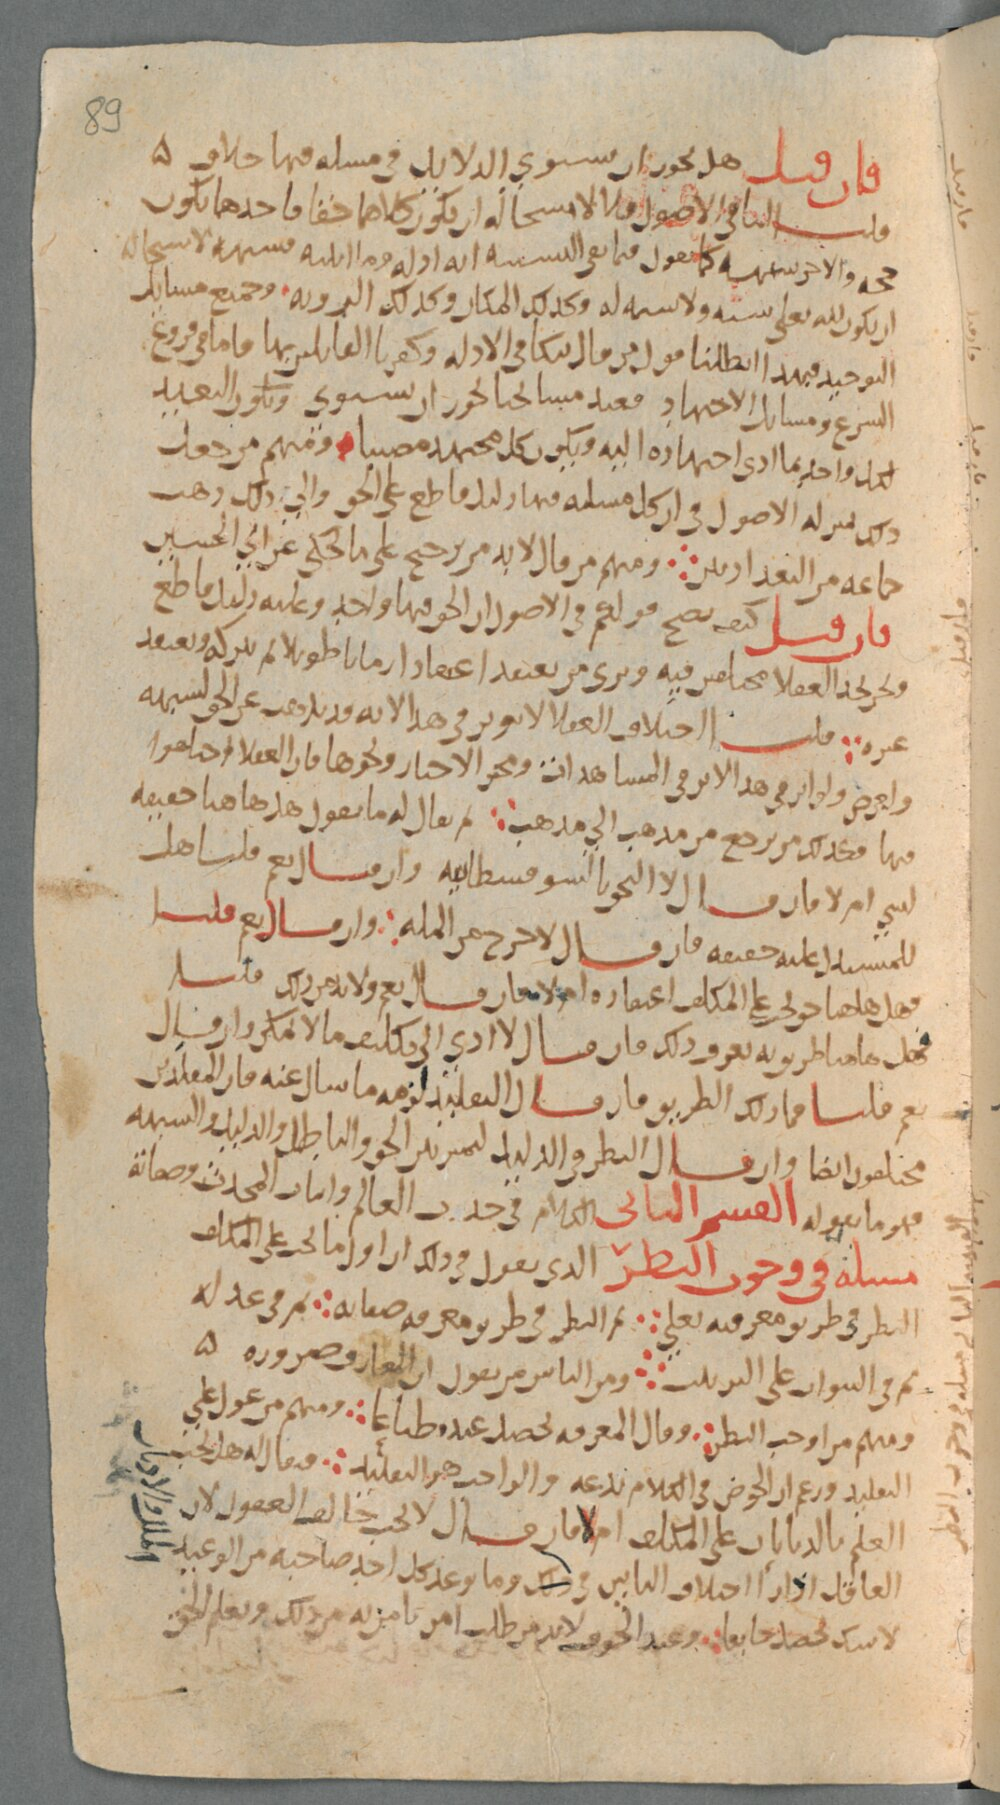 89
فان قيل هل يجوز ان يستوي الدلايل في مسله فيها خلاف ه
قلنا اما في الاصول فلا لاستحاله ان يكون كلاهما حقا فاحدهما يكون
حجه والاخر شبهه كما نقول فيما نفى التشبيه انه ادله وما اثبته فشبهه لاستحاله
ان يكون لله تعلى شبه ولا شبه له وكذلك المكان وكذلك الرويه وجميع مسايل
التوحيد فبهذا ابطلنا قول من قال بتكافي الادله وكفرنا القايلين بها فاما في فروع
الشرع ومسايل الاجتهاد فعند مشايخنا يجوز ان يستوي ويكون التعبد
لكل واحد بما ادى اجتهاده اليه ويكون كل مجتهد مصيبا ومنهم من جعل
ذلك بمنزله الاصول في ان كل مسله فيها دليل قاطع على الحق والى ذلك ذهب
جماعه من البغداديين ومنهم من قال لا بد من ترجيح على ما حكي عن ابي الحسين
فان قيل كيف يصح قولكم في الاصول ان الحق فيها واحد وعليه دليل قاطع
ونحن نجد العقلا مختلفين فيه ونرى من يعتقد اعتقادا زمانا طويلا ثم يتركه ويعتقد
غيره قلنا اختلاف العقلا لا يوثر في هذا لانه قد يذهب عن الحق لشبهه
واغراض ولو اثر في هذا لاثر في المشاهدات ومخبر الاخبار ونحوها فان العقلا اختلفوا
فيها وكذلك من يرجع من مذهب الى مذهب ثم يقال له ما تقول هل هاهنا حقيقه
لشي ام لا فان قال لا التحق بالسوفسطاييه وان قال نعم قلنا هل
للمستدل عليه حقيقه فان قال لا خرج عن المله وان قال نعم قلنا
فهل هاهنا حق يجب على المكلف اعتقاده ام لا فان قال نعم ولا بد من ذلك قلنا
فهل هاهنا طريق به يعرف ذلك فان قال لا ادى الى تكليف ما لا يمكن وان قال
نعم قلنا فما ذلك الطريق فان قال التقليد لزمه ما سال عنه فان المقلدين
مختلفون ايضا وان قال النظر في الدليل ليميز بين الحق والباطل والدليل والشبهه
فهو ما نقوله القسم الثاني الكلام في حدث العالم واثبات المحدث وصفاته
مسله في وجوب النظر الذي نقول في ذلك ان اول ما يجب على المكلف
النظر في طريق معرفته تعلى ثم النظر في طريق معرفه صفاته ثم في عدله
ثم في النبوات على الترتيب ومن الناس من يقول ان المعارف ضروره ه
ومنهم من اوجب النظر وقال المعرفه تحصل عنده طباعا ومنهم من عول على
التقليد وزعم ان الخوض في الكلام بدعه والواجب هو التقليد ويقال له هل يجب
العلم بالديانات على المكلف ام لا فان قال لا يجب خالف العقول لان
العاقل اذا راى اختلاف الناس في ذلك وما توعد كل احد صاحبه من الوعيد
لا شك تحصل خايفا وعند الخوف لا بد من طلب امر يامن به من ذلك ويعلم الحق